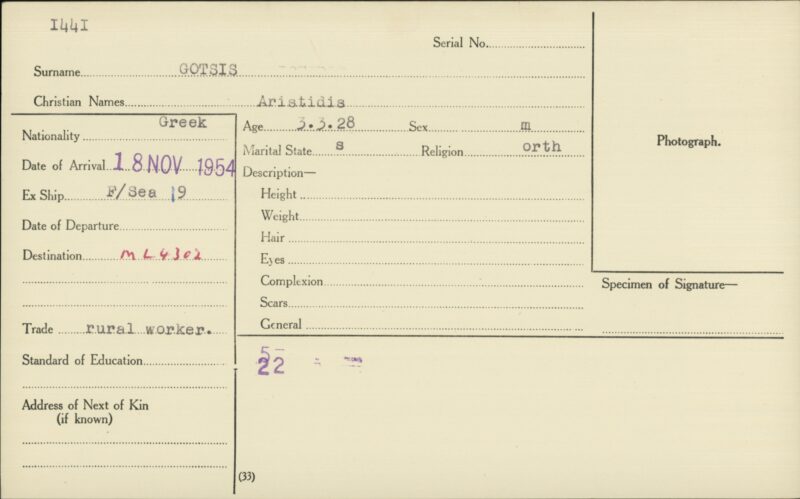 1441
Serial No.
Surname GOTSIS
Christian Names Aristidis
Nationality Greek
Date of Arrival 18 NOV 1954
Ex Ship F/Sea 19
Date of Departure
Destination ML4302
Trade rural worker.
Standard of Education
Address of Next of Kin
(if known)
Age 3.3.28 Sex m
Marital State s Religion orth
Description—
Height
Weight
Hair
Eyes
Complexion
Scars
General
5
22
(33)
Photograph.
Specimen of Signature—